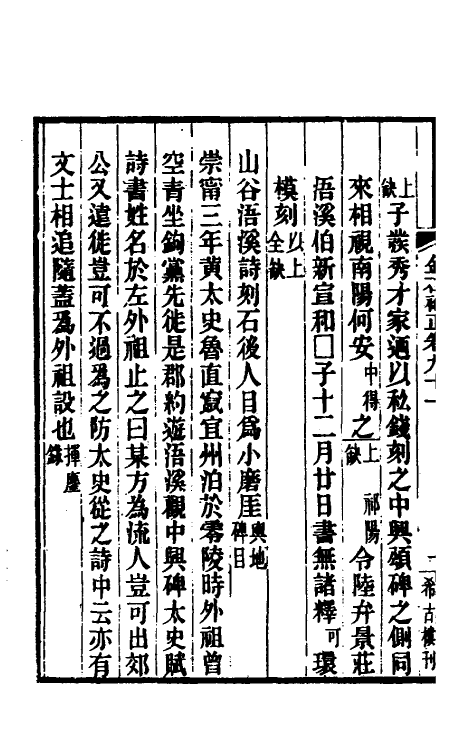 上缺子發秀才家迺以私錢刻之中興頌碑之側同
來相視南陽何安中得之上缺祁陽令陸弁景莊
浯溪伯新宣和□子十二月廿日書無諸釋可環
模刻以上全缺
山谷浯溪詩刻石後人目爲小磨厓輿地碑目
崇甯三年黄太史魯直竄宜州泊於零陵時外祖曾
空青坐鉤黨先徙是郡約遊浯溪觀中興碑太史賦
詩書姓名於左外祖止之曰某方為流人豈可出郊
公又遠徙豈可不過爲之防太史從之詩中云亦有
文士相追隨蓋爲外祖設也揮麈錄
金石補正卷九十一
一
希古樓刊